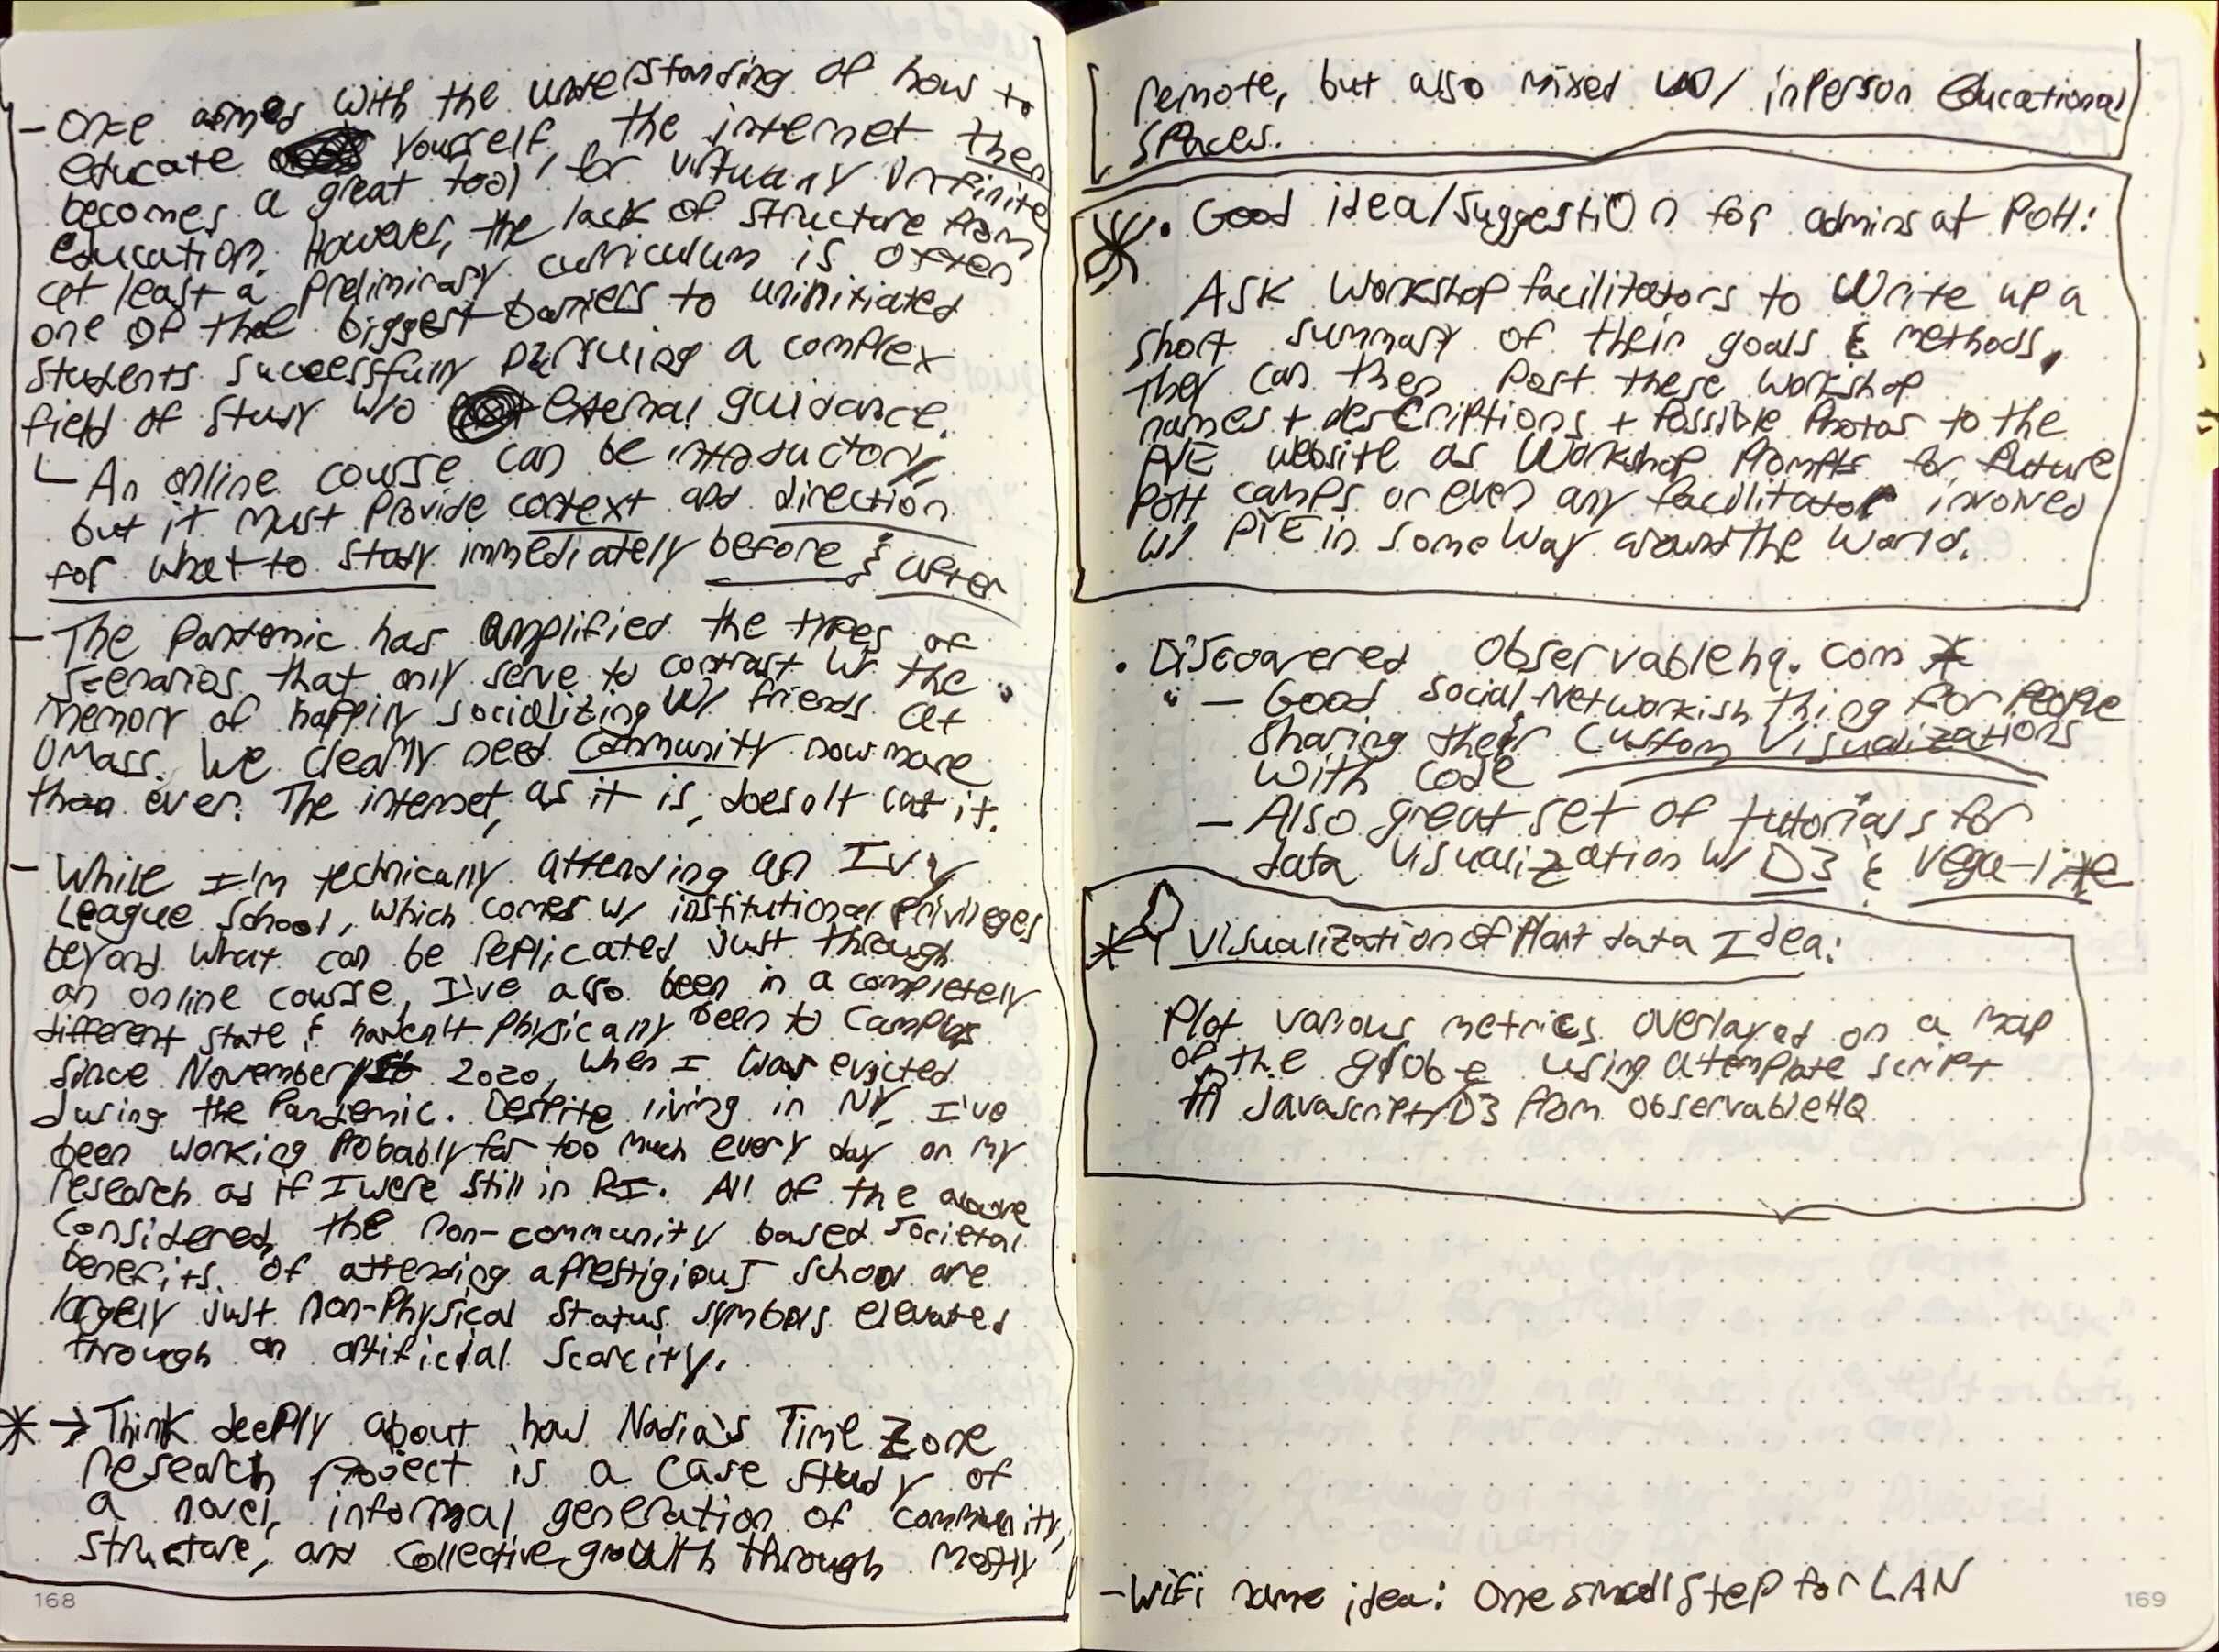 - Once armed with the understanding of how to
educate yourself, the internet then
becomes a great tool for virtually infinite
education. However, the lack of structure from
at least a preliminary curriculum is often
one of the biggest barriers to uninitiated
students successfully pursuing a complex
field of study w/o external guidance.
└ An online course can be introductory,
but it must provide context and direction
for what to study immediately before & after
- The pandemic has amplified the types of
scenarios that only serve to contrast w/ the
memory of happily socializing w/ friends at
UMass. We clearly need community now more
than ever. The internet, as it is, doesn't cut it.
- While I'm technically attending an Ivy
League School, which comes w/ institutional privileges
beyond what can be replicated just through
an online course, I've also been in a completely
different state & haven't physically been to campus
since November 2020, when I was evicted
during the pandemic. Despite living in NY, I've
been working probably far too much every day on my
research as if I were still in RI. All of the above
considered, the non-community based societal
benefits of attending a prestigious school are
largely just non-physical status symbols elevated
through an artificial scarcity.
* → Think deeply about how Nadia's Time Zone
research project is a case study of
a novel, informal generation of community,
structure, and collective growth through mostly
168
remote, but also mixed w/ inperson educational
spaces.
* • Good idea/suggestion for admins at POH:
Ask workshop facilitators to write up a
short summary of their goals & methods,
they can then post these workshop
names + descriptions + possible photos to the
PYE website as workshop prompts for future
POH camps or even any facilitator involved
w/ PYE in some way around the world.
• Discovered observablehq.com *
- Good social-networkish thing for people
sharing their custom visualizations
with code
- Also great set of tutorials for
data visualization w/ D3 & Vega-lite
* Visualization of Plant data Idea:
Plot various metrics overlayed on a map
of the globe using a template script
in Javascript/D3 from observableHQ
- Wifi name idea: One small step for LAN
169